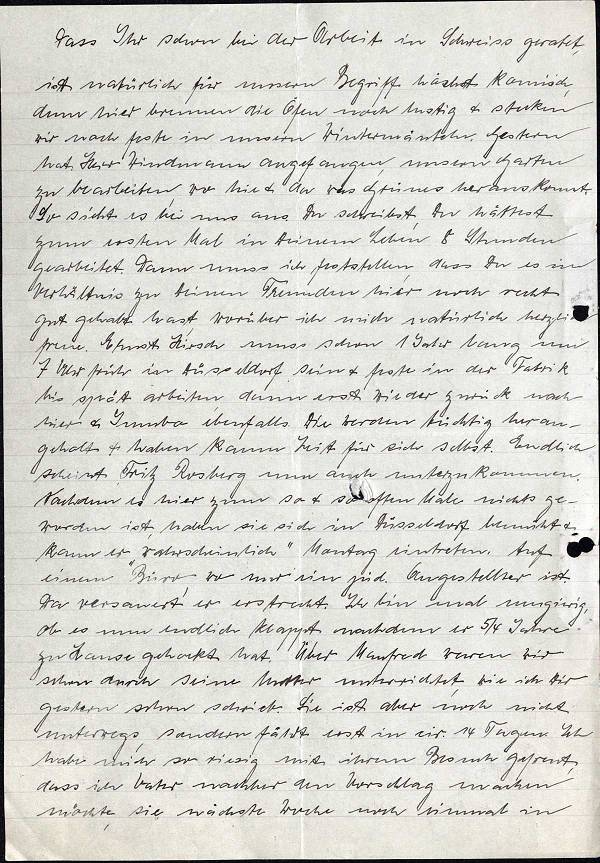 Dass Ihr schon bei der Arbeit in Schweiss geratet,
ist natürlich für unsern Begriff höchst komisch,
denn hier brennen die Öfen noch lustig & stecken
wir noch feste in unsern Wintermänteln. Gestern
hat Herr Windmann angefangen, unsern Garten
zu bearbeiten wo hie & da was Grünes herauskommt.
So sieht es bei uns aus. Du schreibst, Du hättest
zum ersten Mal in Deinem Leben 8 Stunden
gearbeitet. Dann muss ich feststellen, dass Du es in
Verhältnis zu Deinen Freunden hier noch recht
gut gehabt hast, worüber ich mich natürlich herzli
freue. Ernst Hirsch muss schon 1 Jahr lang um
7 Uhr früh in Düsseldorf sein & feste in der Fabrik
bis spät arbeiten dann erst wieder zurück nach
hier & ebenfalls. Die werden tüchtig heran-
geholt & haben kaum Zeit für sich selbst. Endlich
scheint Fritz Rosberg nun auch unterzukommen.
Nachdem es hier zum so & so often Male nichts ge-
worden ist, haben sie sich in Düsseldorf bemüht &
kann er "wahrscheinlich" Montag eintreten. Auf
einem "Büro" wo nur ein jüd. Angestellter ist.
Da "versauert" er erstrecht. Ich bin mal neugierig,
ob es nun endlich klappt nachdem er 5/4 Jahre
zu Hause gehockt hat. Über Manfred waren wir
schon durch seine Mutter unterrichtet wie ich Dir
gestern schon schrieb. Sie ist aber noch nicht
unterwegs, sondern fährt erst in cir. 14 Tagen. Ich
habe mich so riesig mit ihrem Besuch gefreut,
dass ich Vater nachher den Vorschlag machen
möchte, sie nächste Woche noch einmal in